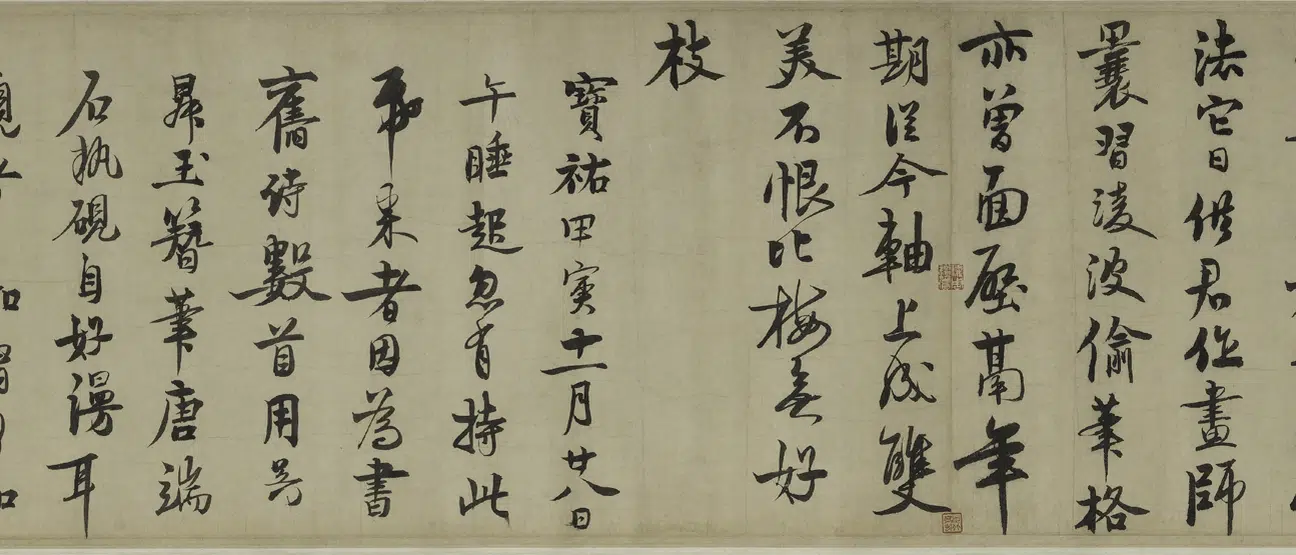 法它日供君作畫師
曩習淩波偷筆格
亦曾面壓鬲年
期從今軸上成雙
美不恨比梅無好
枝
寶祐甲寅十一月廿八日
午睡起忽有持此
帋来者因為書
舊詩數首用吳
昇玉簪筆唐端
石執硯自好漫耳